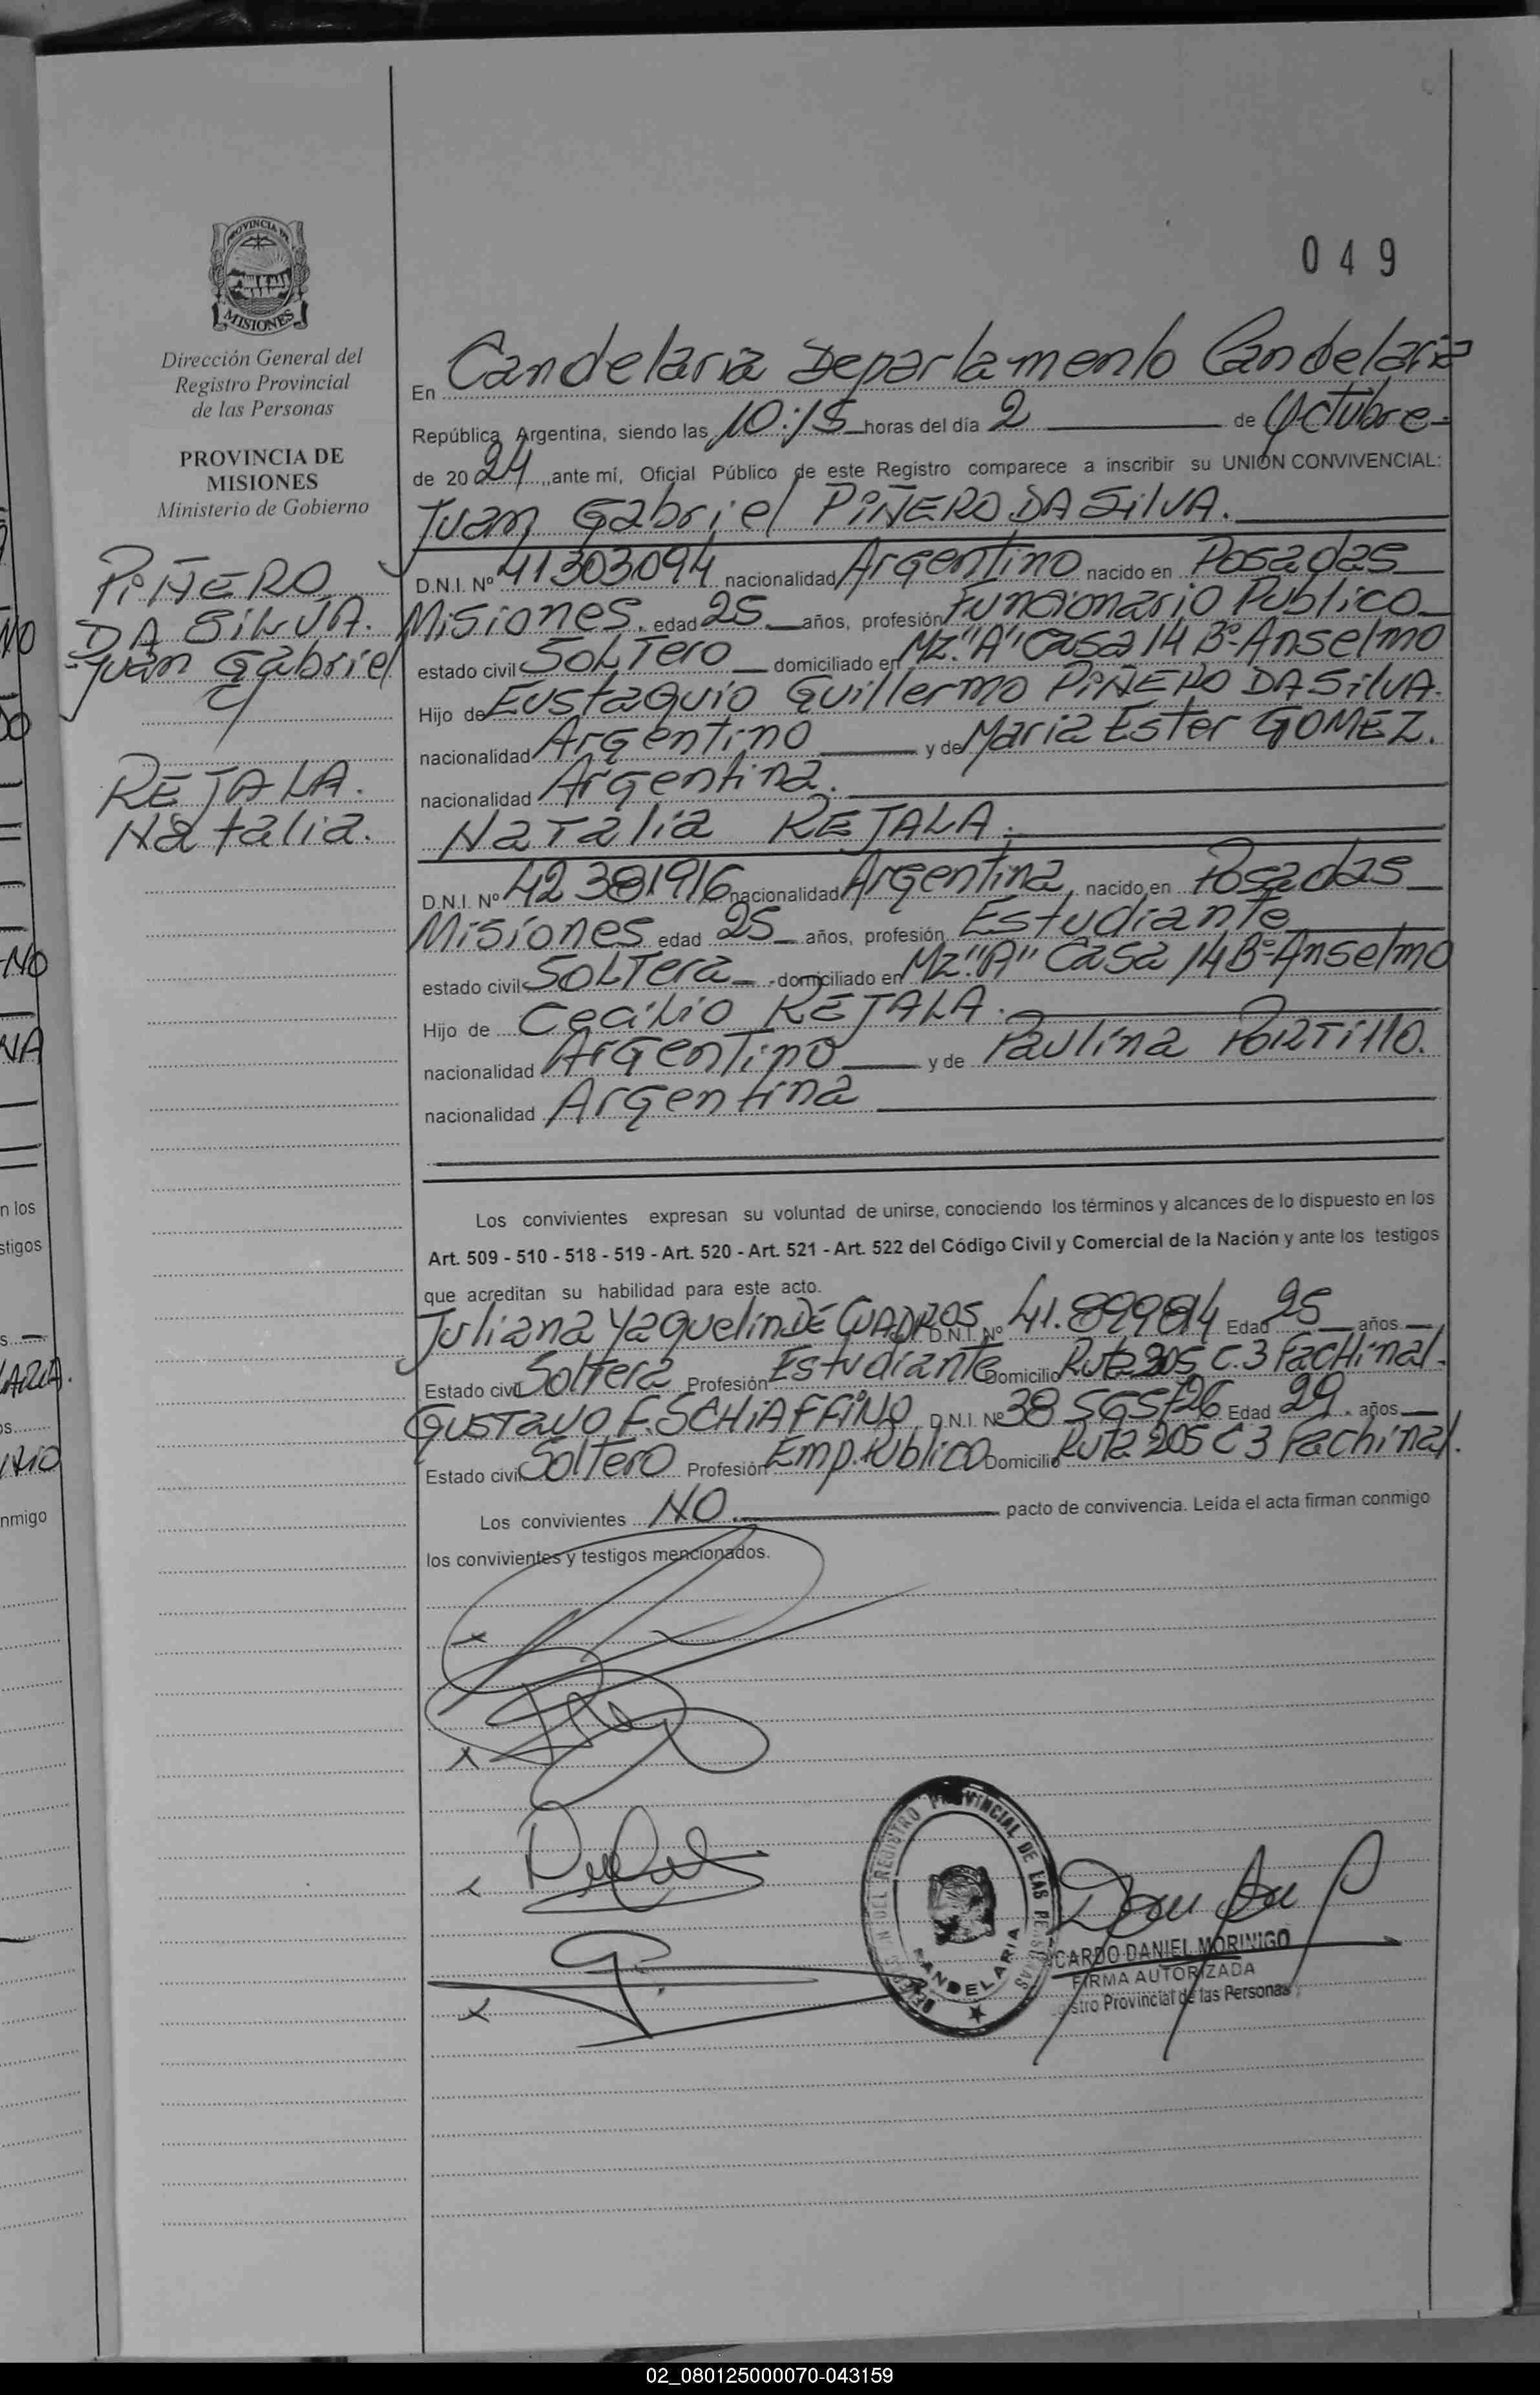 049
PROVINCIA DE
MISIONES
Dirección General del
Registro Provincial
de las Personas
PROVINCIA DE
MISIONES
Ministerio de Gobierno
PiÑERO
DA SilVA.
Juan Gabriel
REJALA.
Natalia.
En Candelaria Departamento Candelaria
República Argentina, siendo las 10:15 horas del día 2 de Octubre
de 2024, ante mí, Oficial Público de este Registro comparece a inscribir su UNIÓN CONVIVENCIAL:
Juan Gabriel PiÑERO DA SilVA.
D.N.I. Nº 41303094 nacionalidad Argentino nacido en Posadas
Misiones. edad 25 años, profesión Funcionario Publico
estado civil SOLTero domiciliado en Mz."A" Casa 14 Bº Anselmo
Hijo de Eustaquio Guillermo PiÑERO DA SilVA.
nacionalidad Argentino y de Maria Ester GOMEZ.
nacionalidad Argentina.
Natalia REJALA.
D.N.I. Nº 42381916 nacionalidad Argentina nacido en Posadas
Misiones edad 25 años, profesión Estudiante
estado civil SOLTera domiciliado en Mz."A" Casa 14 Bº Anselmo
Hijo de Cecilio REJALA.
nacionalidad Argentino y de Paulina PORTillO.
nacionalidad Argentina
Los convivientes expresan su voluntad de unirse, conociendo los términos y alcances de lo dispuesto en los
Art. 509 - 510 - 518 - 519 - Art. 520 - Art. 521 - Art. 522 del Código Civil y Comercial de la Nación y ante los testigos
que acreditan su habilidad para este acto.
Juliana Yaquelin DE CUADROS D.N.I. Nº 41.899814 Edad 25 años
Estado civil Soltera Profesión Estudiante Domicilio Ruta 205 C.3 Fachinal.
GUSTAVO F. SCHiAFFiNO D.N.I. Nº 38 565126 Edad 29. años
Estado civil Soltero Profesión Emp. Publico Domicilio Ruta 205 C 3 Fachinal.
Los convivientes NO pacto de convivencia. Leída el acta firman conmigo
los convivientes y testigos mencionados.
REGISTRO PROVINCIAL DE LAS PERSONAS
CANDELARIA
CARDO DANIEL MORINIGO
FIRMA AUTORIZADA
istro Provincial de las Personas
02_080125000070-043159